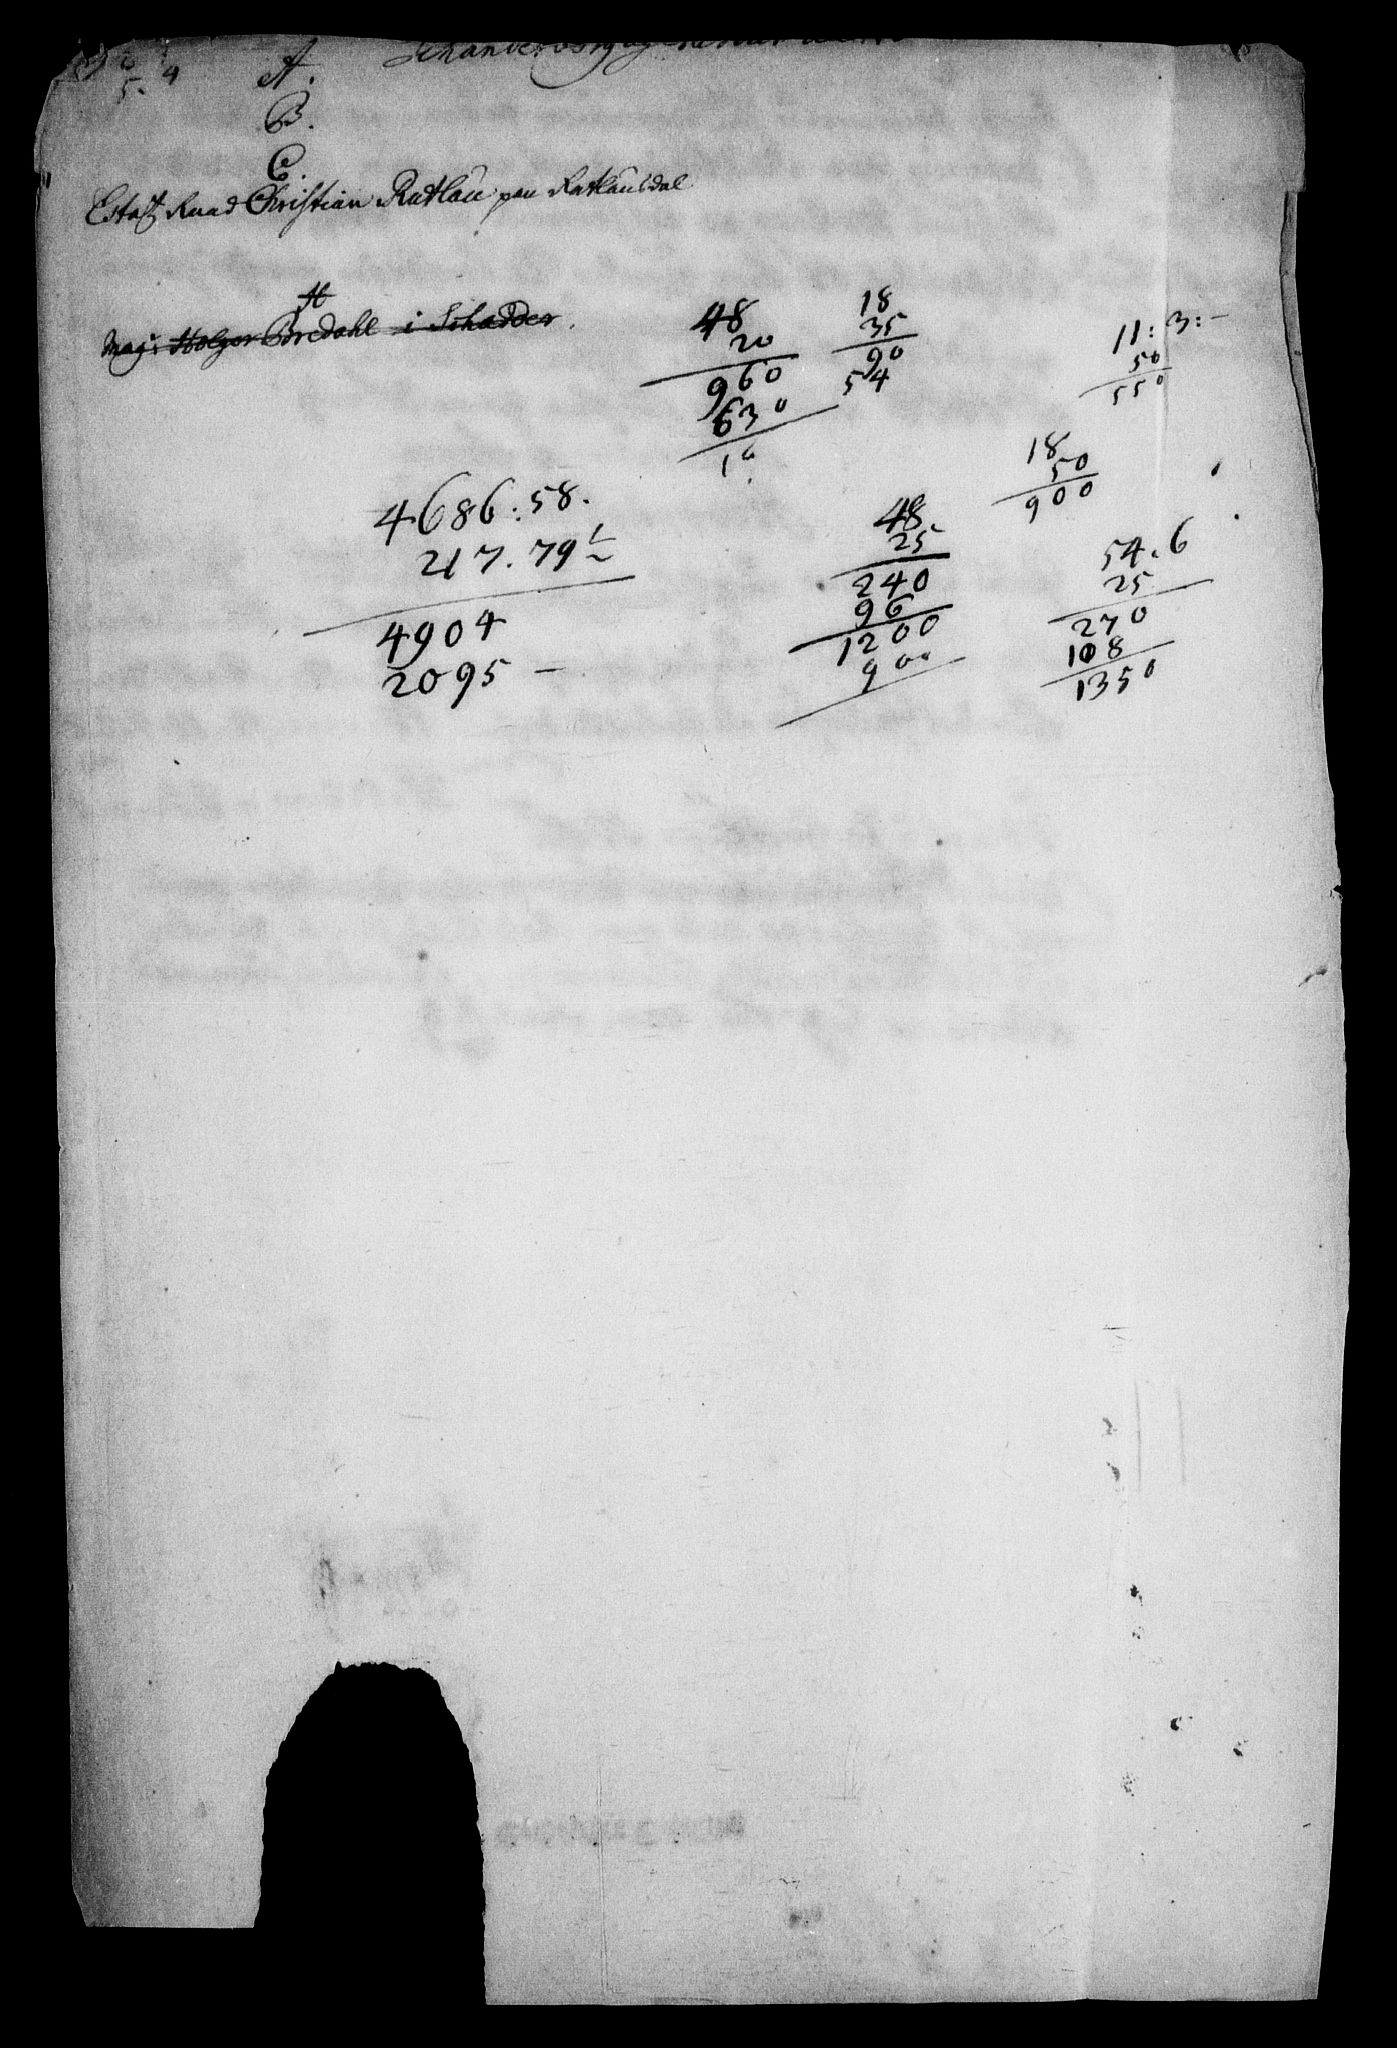 5. 4
A.
B.
C.
Etatz Raad Christian Ratlau paa Ratlausdal
H
Mag: Holger Bredahl i Schadder.
48
20
960
630
10
18
35
90
54
11: 3: -
50
550
18
50
900
4686:58.
217.79
4904
2095 -
48
25
240
96
1200
900
54. 6
25
270
108
1350